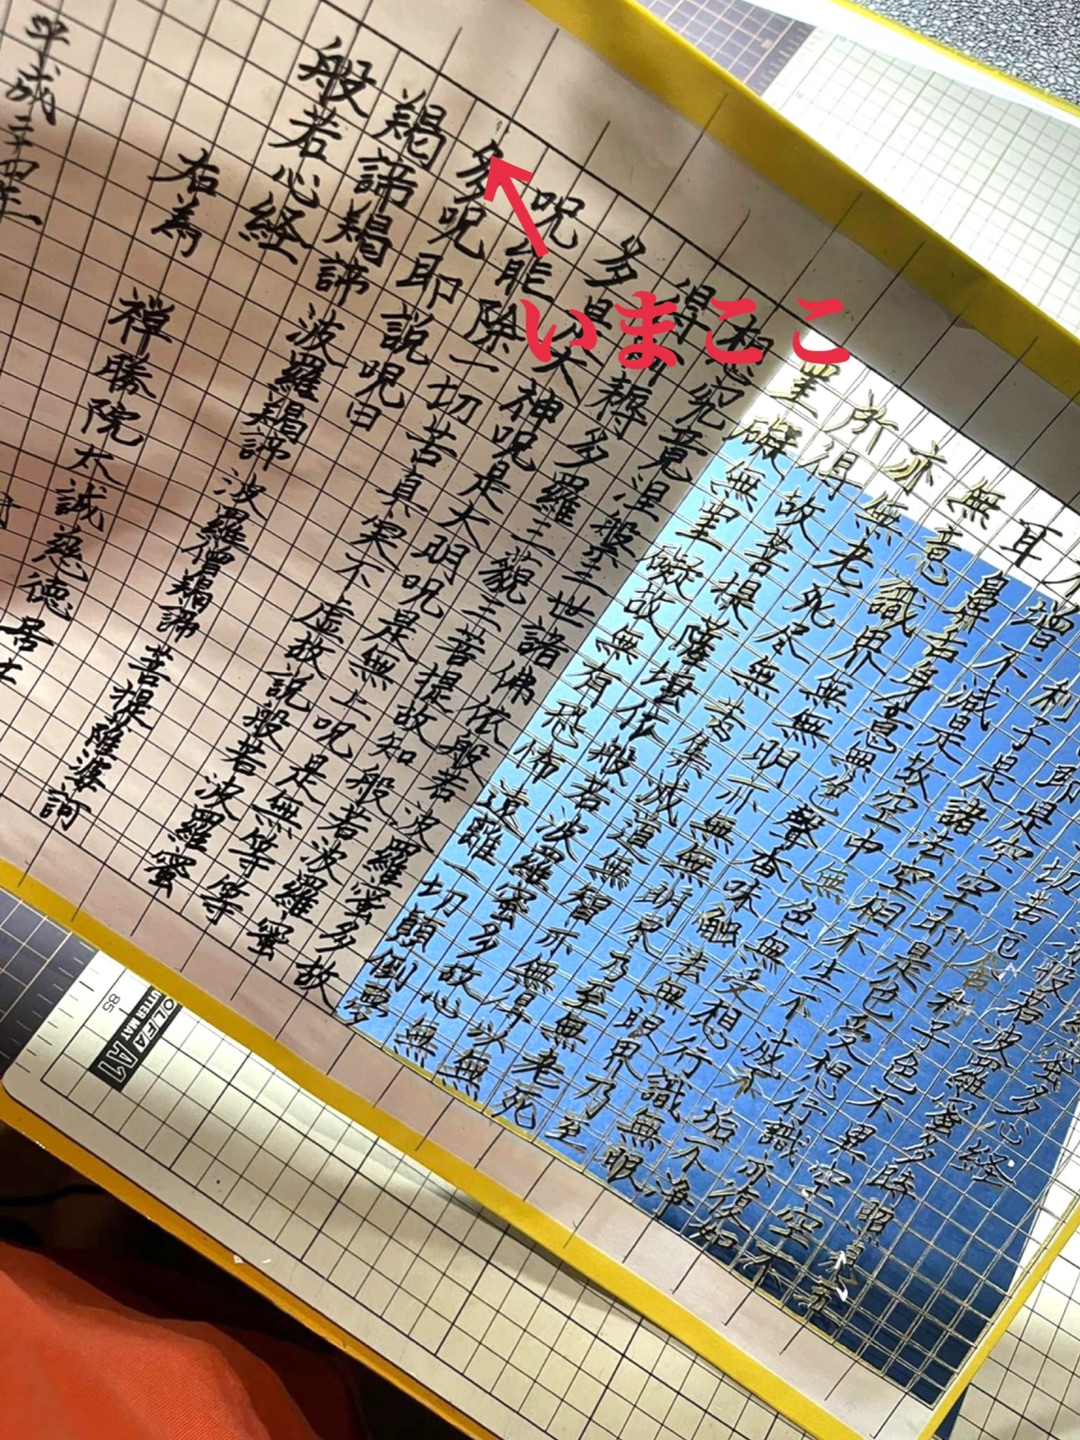 波羅蜜多心経
般若波羅蜜多時照見五
一切苦厄舎利子色不異空空
即是空空即是色受想行識亦復如
利子是諸法空相不生不滅不垢不浄
不増不減是故空中無色無受想行識無眼
耳鼻舌身意無色聲香味触法無眼界乃至
無意識界無無明亦無無明尽乃至無老死
亦無老死尽無苦集滅道無智亦無得以無
所得故菩提薩埵依般若波羅蜜多故心無
罣礙無罣礙故無有恐怖遠離一切顛倒夢
想究竟涅槃三世諸佛依般若波羅蜜多故
得阿耨多羅三藐三菩提故知般若波羅蜜
多是大神呪是大明呪是無上呪是無等等
呪能除一切苦真実不虚故説般若波羅蜜
多呪即説呪曰
羯諦羯諦 波羅羯諦 波羅僧羯諦 菩提薩婆訶
般若心経
右為 禅勝院太誠慈徳居士
平成二十四年
いまここ
OLFA
CUTTER MAT
A1
85